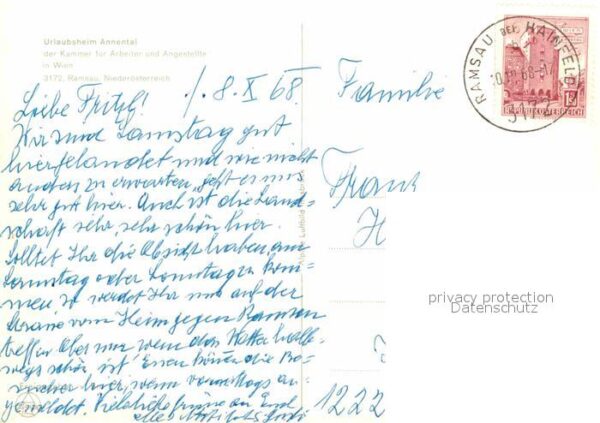 Urlaubsheim Annental
der Kammer für Arbeiter und Angestellte
in Wien
3172, Ramsau, Niederösterreich
8. X 68
Liebe Fritzl!
Wir sind Samstag gut
hier gelandet und wie nicht
anders zu erwarten, geht es mir
sehr gut hier. Auch ist die Land-
schaft sehr, sehr schön hier.
Solltet Ihr die Absicht haben, am
Samstag oder Sonntag zu kom-
men, so werdet Ihr mich auf der
vom Heim gegen Ramsau
treffen. Aber nur wenn das Wetter halb-
wegs schön ist. Essen können die Be-
sucher hier, wenn vormittags an-
gemeldet. Viele liebe Grüße an Euch
alle
Familie
Frau
H
1222
RAMSAU BEI HAINFELD
3172
REPUBLIK ÖSTERREICH
privacy protection
Datenschutz